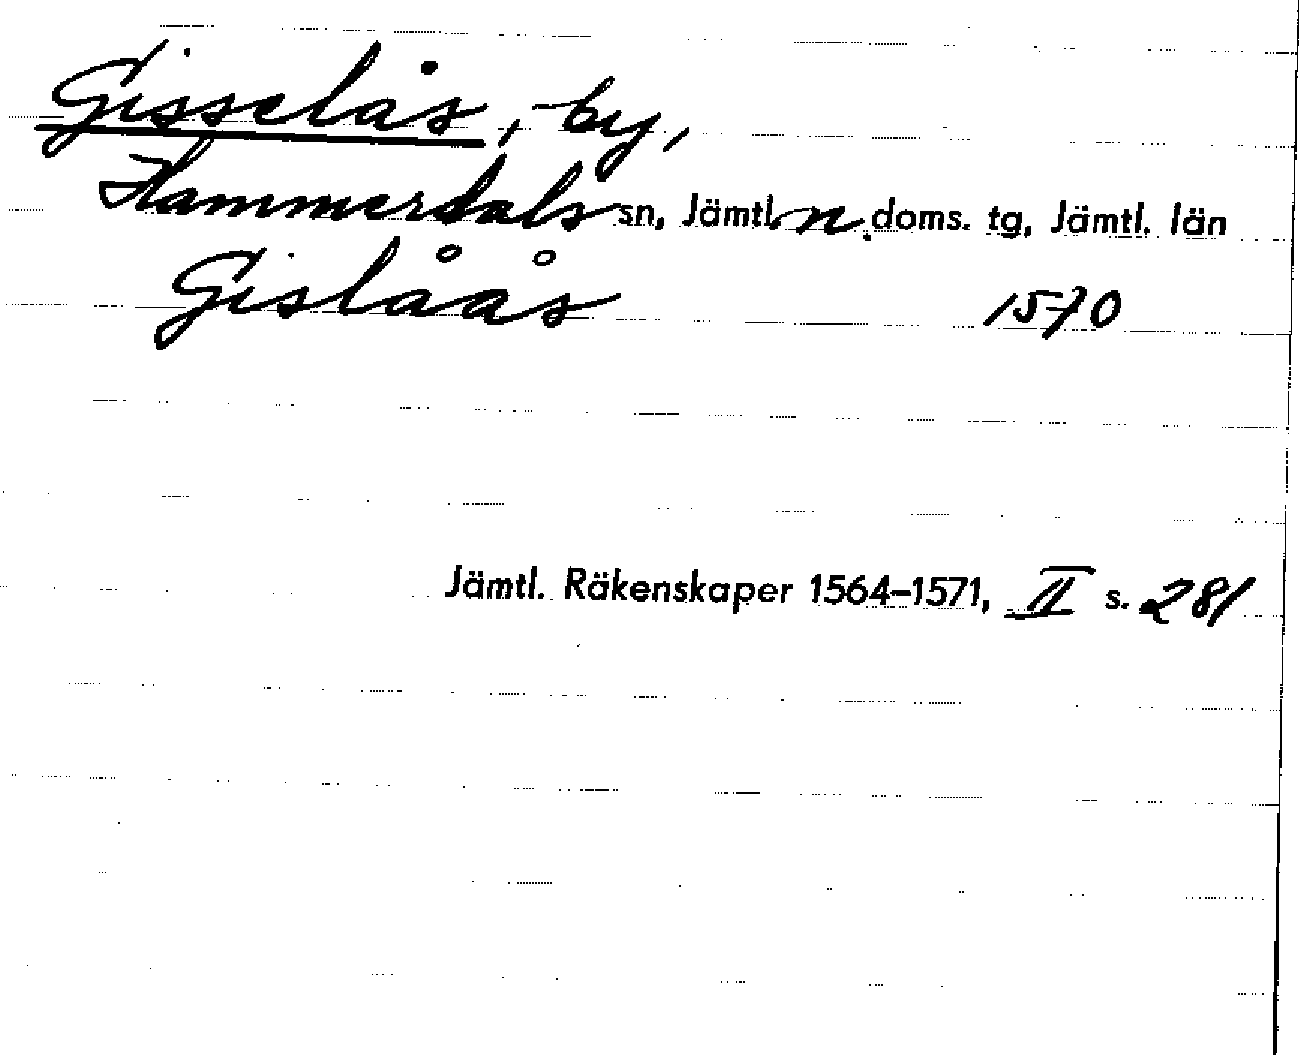 Gisselås, by,
Hammerdals sn, Jämtl. n. doms. tg, Jämtl. län
Gislåås 1570
Jämtl. Räkenskaper 1564–1571, II s. 281